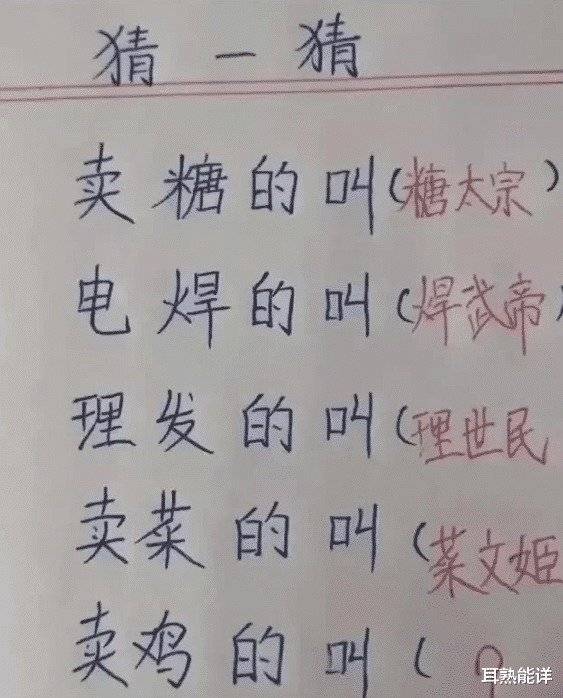 猜一猜
卖糖的叫(糖太宗)
电焊的叫(焊武帝)
理发的叫(理世民
卖菜的叫(菜文姬
卖鸡的叫(
耳熟能详